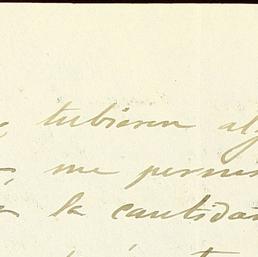 tubieren al
, me permi
la cantida